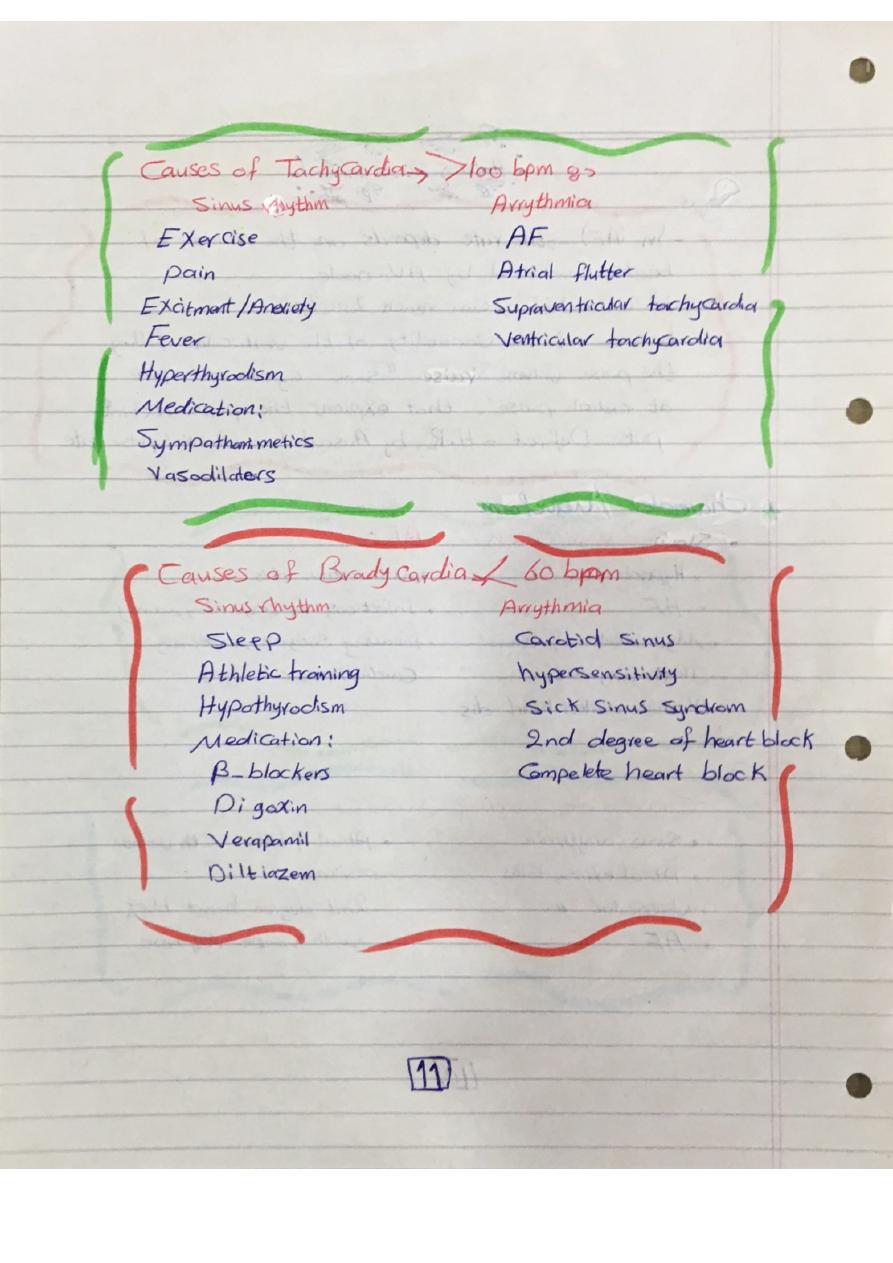 Causes of Tachycardia → >100 bpm :-
Sinus rhythm Arrythmia
Exercise AF
Pain Atrial flutter
Excitment/Anxiety Supraventricular tachycardia
Fever Ventricular tachycardia
Hyperthyrodism
Medication:
Vasodilaters
Causes of Bradycardia < 60 bpm
Sinus rhythm Arrythmia
Sleep Carotid sinus
Athletic training hypersensitivity
Hypothyrodism Sick sinus syndrom
Medication: 2nd degree of heart block
β-blockers Compelete heart block
Digoxin
Verapamil
Diltiazem
11